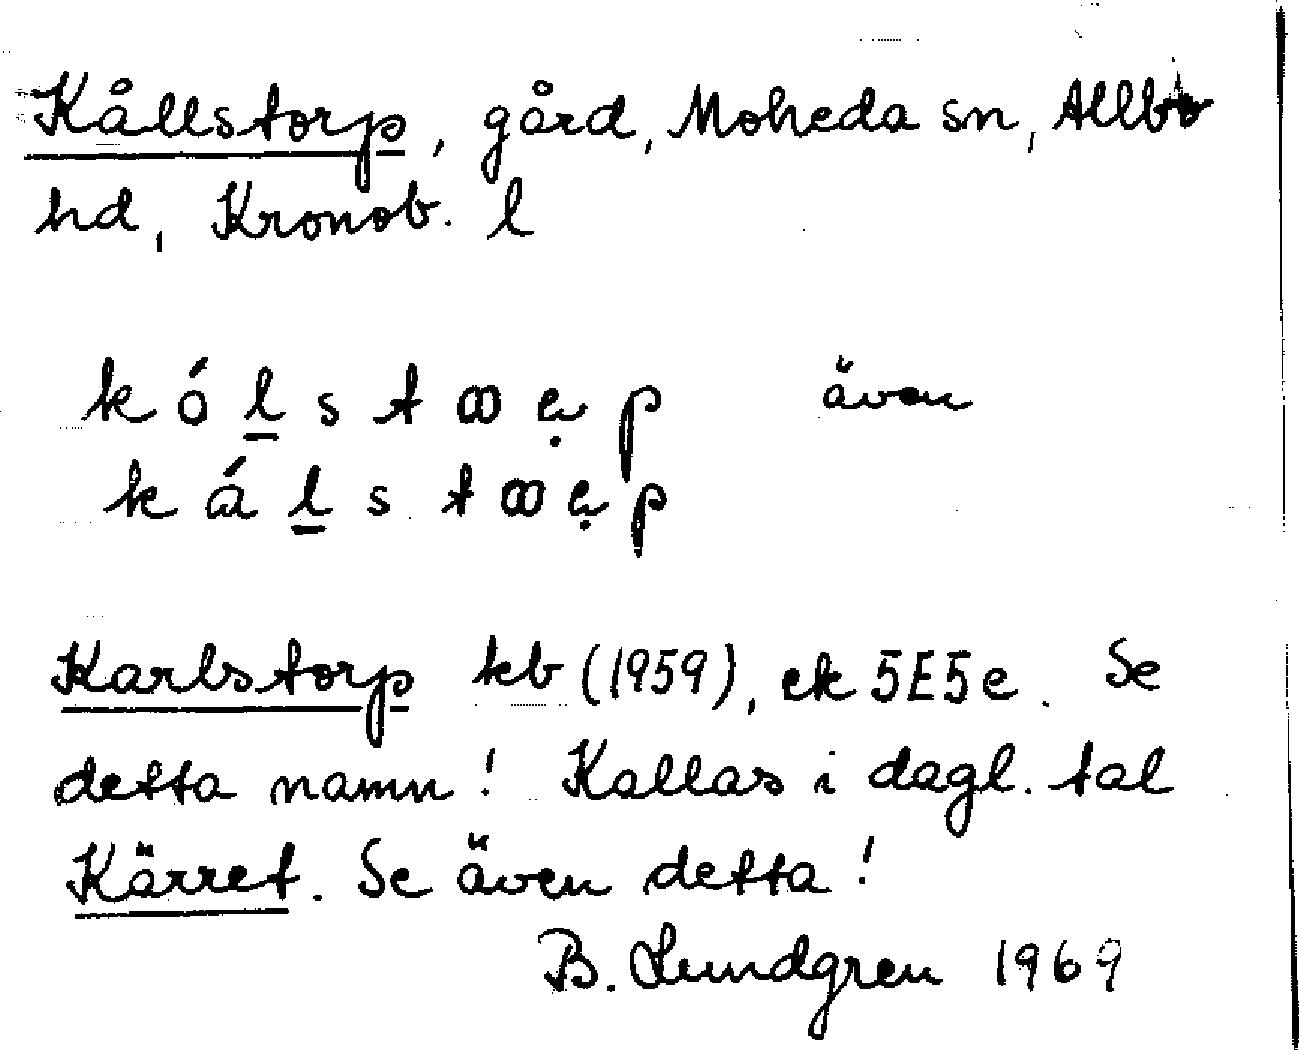 Kållstorp, gård, Moheda sn, Allbo
hd, Kronob. l
k ó l̲ s t ꝏ ẹ p även
k á l̲ s t ꝏ ẹ p
Karlstorp kb (1959), ek 5E5e. Se
detta namn! Kallas i dagl. tal
Kärret. Se även detta!
B. Lundgren 1969